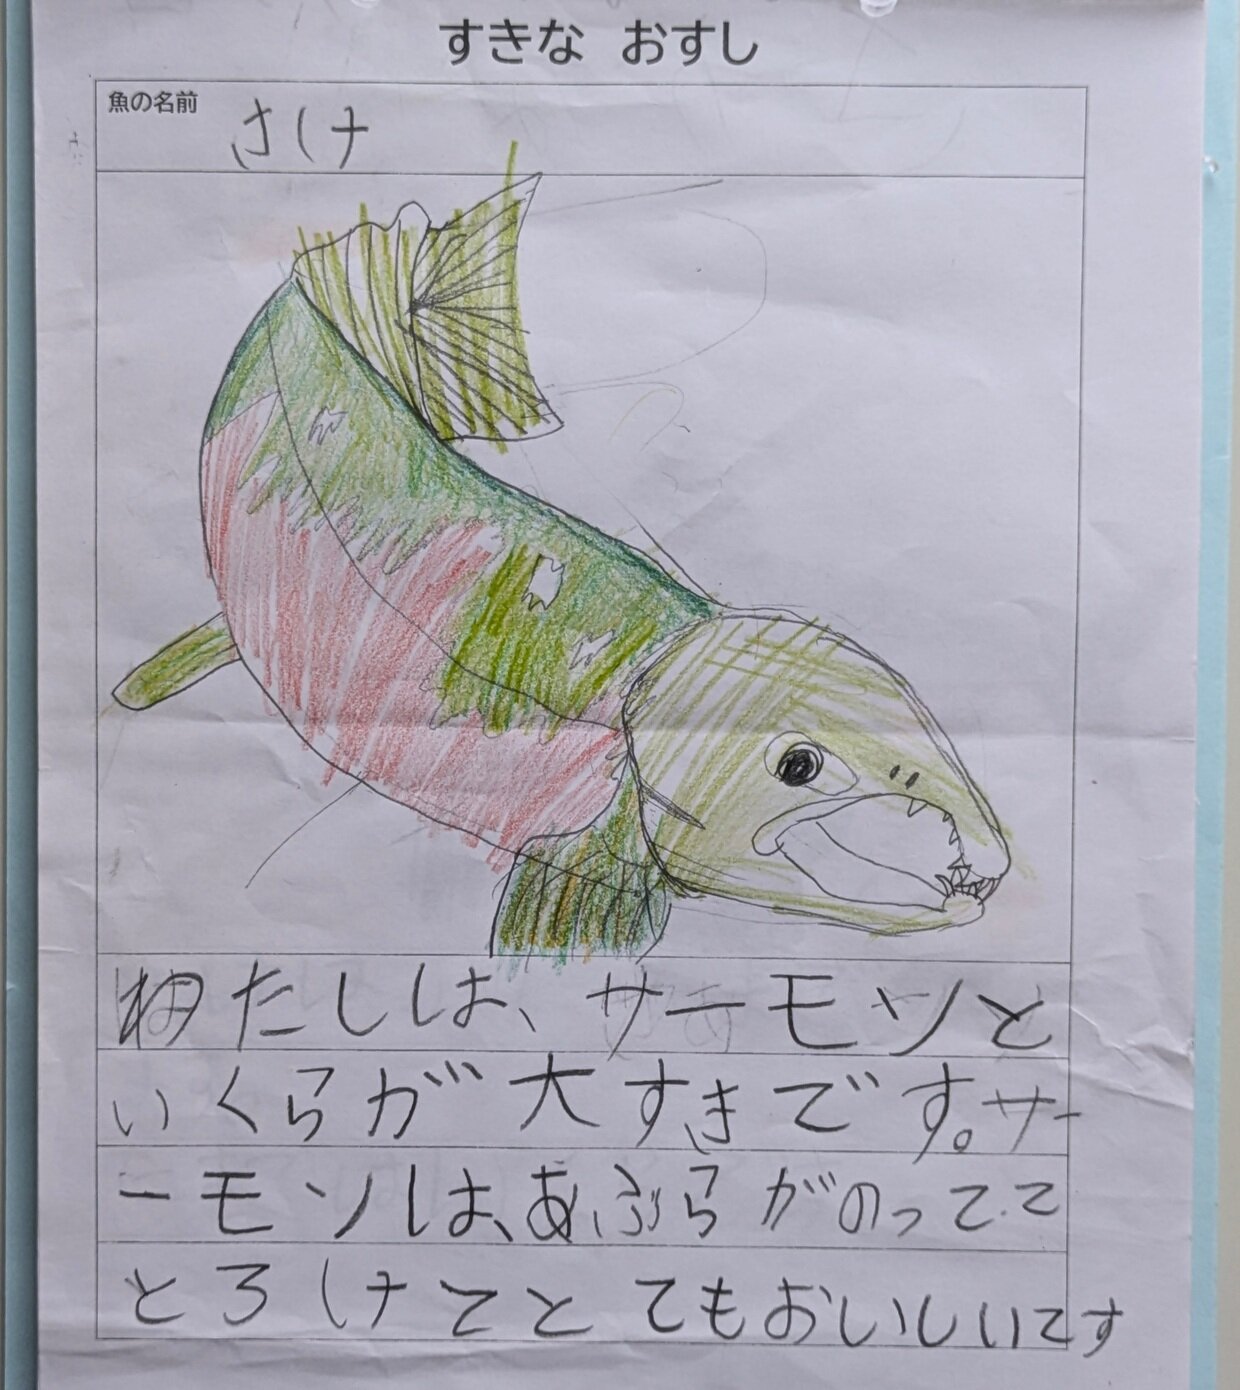 すきな おすし
魚の名前
さけ
わたしは、サーモンと
いくらが大すきです。サー
ーモンは、あぶらがのってて
とろけてとてもおいしいてす